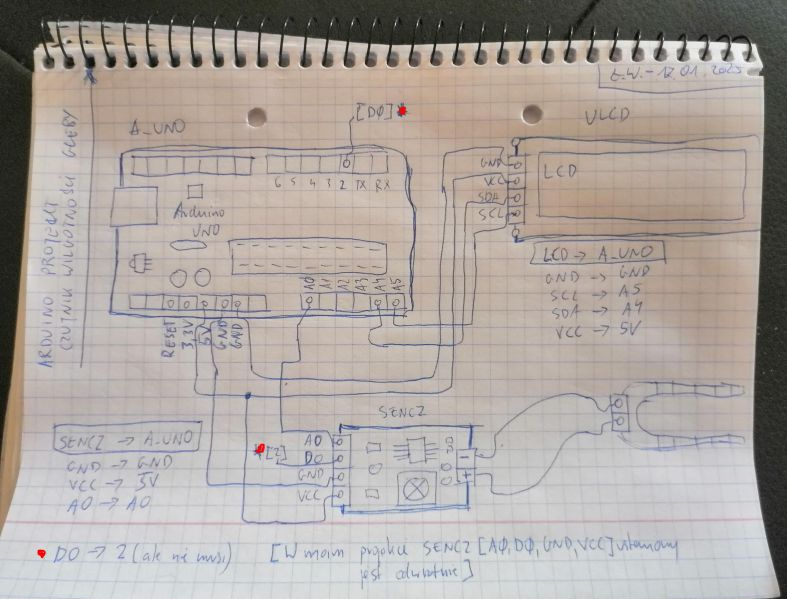 Ł.W. - 12.01.2025
ARDUINO PROJEKT
CZUJNIK WILGOTNOŚCI GLEBY
A_UNO
[DØ] *
VLCD
6 5 4 3 2 TX RX
Arduino
UNO
A0 A1 A2 A3 A4 A5
RESET 3,3V 5V GND GND
GND
VCC
SDA
SCL
LCD
LCD → A_UNO
GND → GND
SCL → A5
SDA → A4
VCC → 5V
SENCZ
A0
*[2] D0
GND
VCC
-
+
SENCZ → A_UNO
GND → GND
VCC → 5V
A0 → A0
D0 → 2 (ale nie musi)
[W moim projekcie SENCZ [AØ, DØ, GND, VCC] ustawiony
jest odwrotnie]